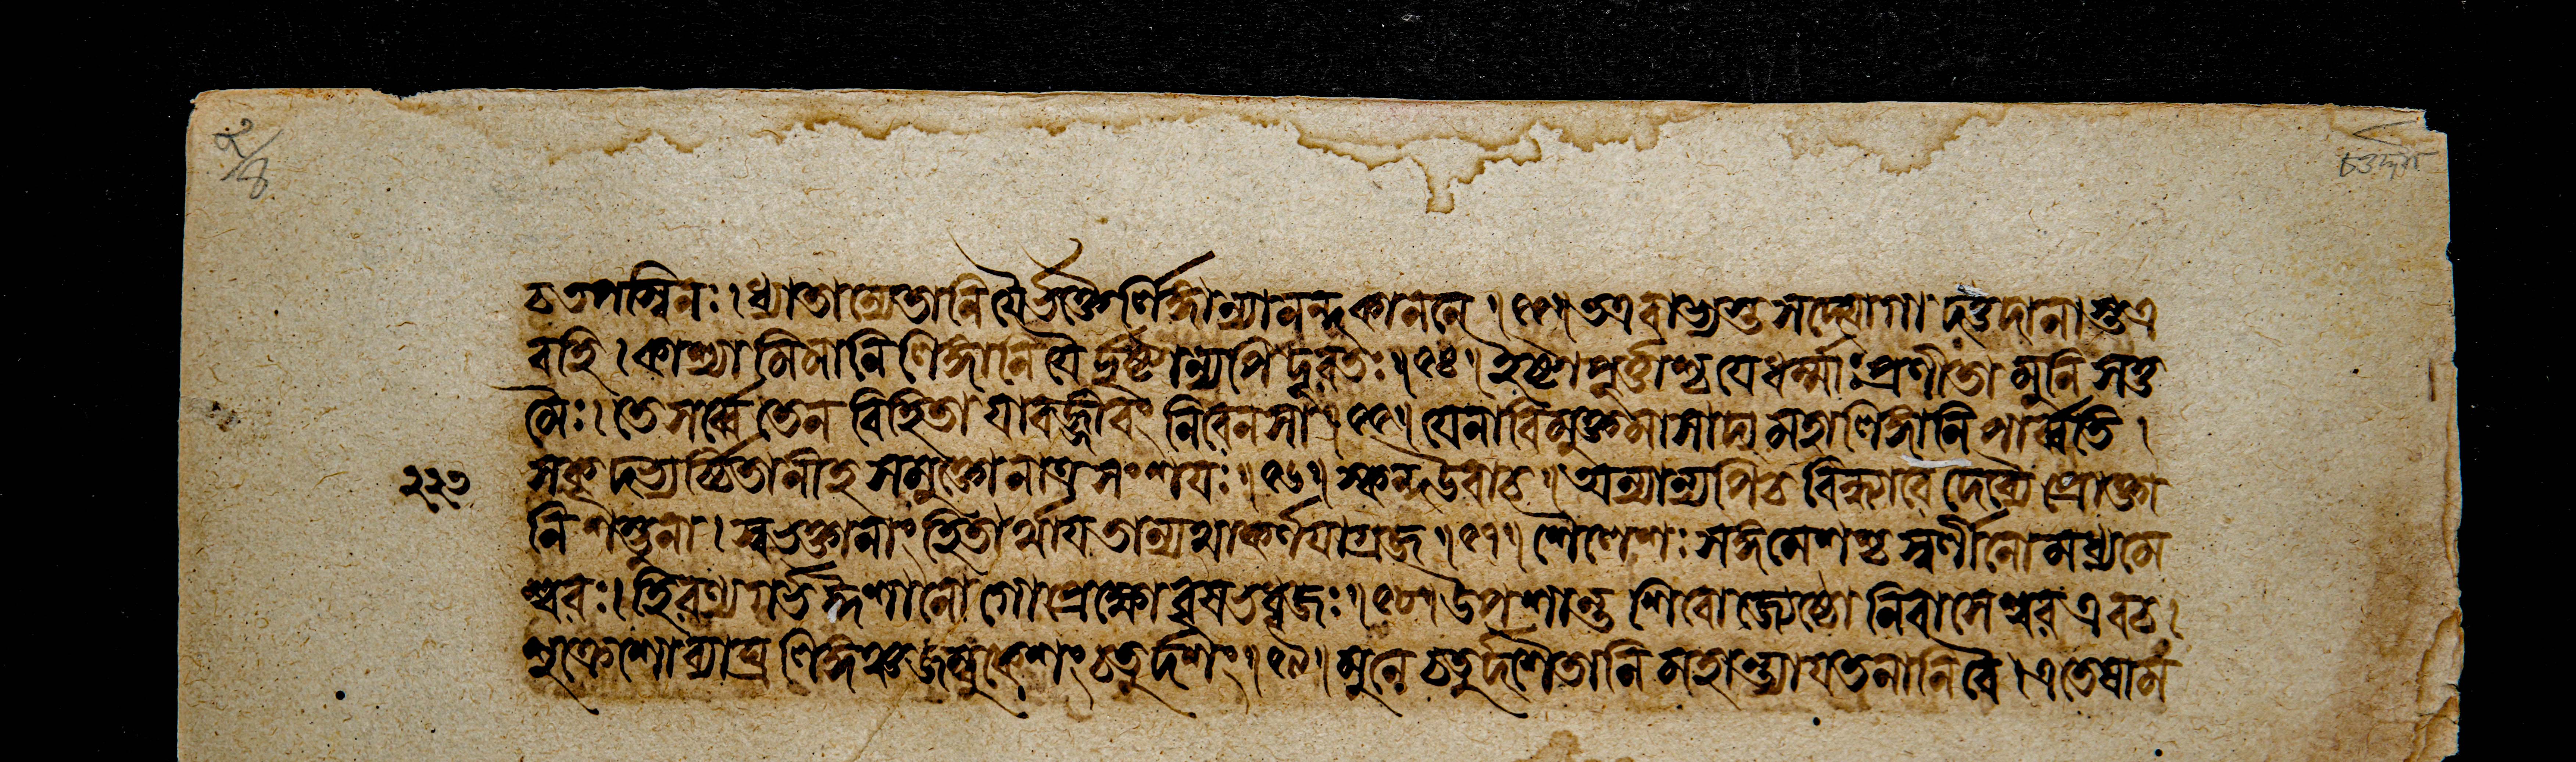 ২/৪
চতপস্বিনঃ।ধ্যাতান্যেতানি যৈর্ভক্তৈর্লিঙ্গান্যানন্দকাননে॥৫৩॥তএবাভ্যস্তসদ্যোগা দত্তদানাস্তএ
বহি।কাশ্যামিমানি লিঙ্গানি যৈর্দৃষ্টান্যপি দূরতঃ॥৫৪॥ইষ্টাপূর্ত্তাশ্চ যে ধর্ম্মাঃ প্রণীতা মুনিসত্ত
মৈঃ।তে সর্ব্বে তেন বিহিতা যাবজ্জীবং নিরেনসা॥৫৫॥যেনাবিমুক্তমাসাদ্য মহালিঙ্গানি পার্ব্বতি।
২২৩ সকৃদভ্যর্চ্চিতানীহ সমুক্তোনাত্র সংশযঃ॥৫৬॥স্কন্দউবাচ॥অন্যান্যপিচ বিন্ধ্যারে দেব্যৈ প্রোক্তা
নি শম্ভুনা।স্বভক্তানাং হিতার্থায তান্যথাকর্ণযাগ্রজ॥৫৭॥শৈলেশঃ সঙ্গমেশশ্চ স্বর্লীনো মধ্যমে
শ্বরঃ।হিরণ্যগর্ভঈশানো গোপ্রেক্ষো বৃষভধ্বজঃ॥৫৮॥উপশান্ত শিবো জ্যেষ্ঠো নিবাসেশ্বর এবচ।
শুক্রেশো ব্যাঘ্র লিঙ্গঞ্চ জম্বুকেশং চতুর্দশং॥৫৯॥মুনে চতুর্দশৈতানি মহান্ত্যাযতনানি বৈ।এতেষাম